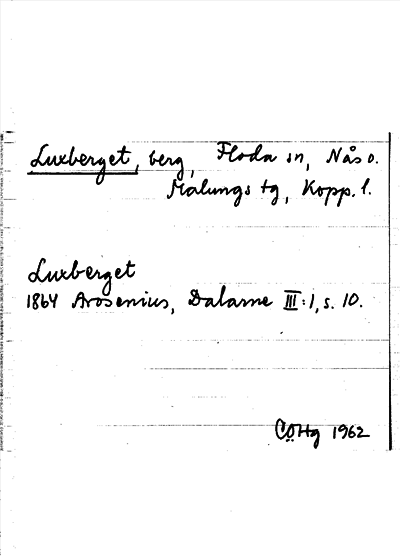 Luxberget, berg, Floda sn, Nås o.
Malungs tg, Kopp. l.
Luxberget
1864 Arosenius, Dalarne III:1, s. 10.
CÖHg 1962